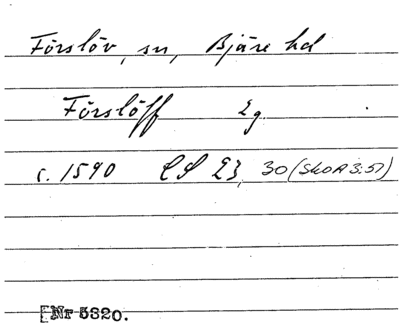 Förslöv, sn, Bjäre hd
Förslöff Lg
c. 1590 LS L3, 30 (SkOA 3:51)
[Nr 5320.